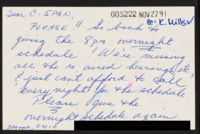 Dear C-SPAN,
005222 NOV 27 91
PLEASE!! Go back to
giving the 8pm overnight
schedule. We're missing
all the is aired during late
& just can't afford to call
every night for the schedule
Please give the
overnight schedule again